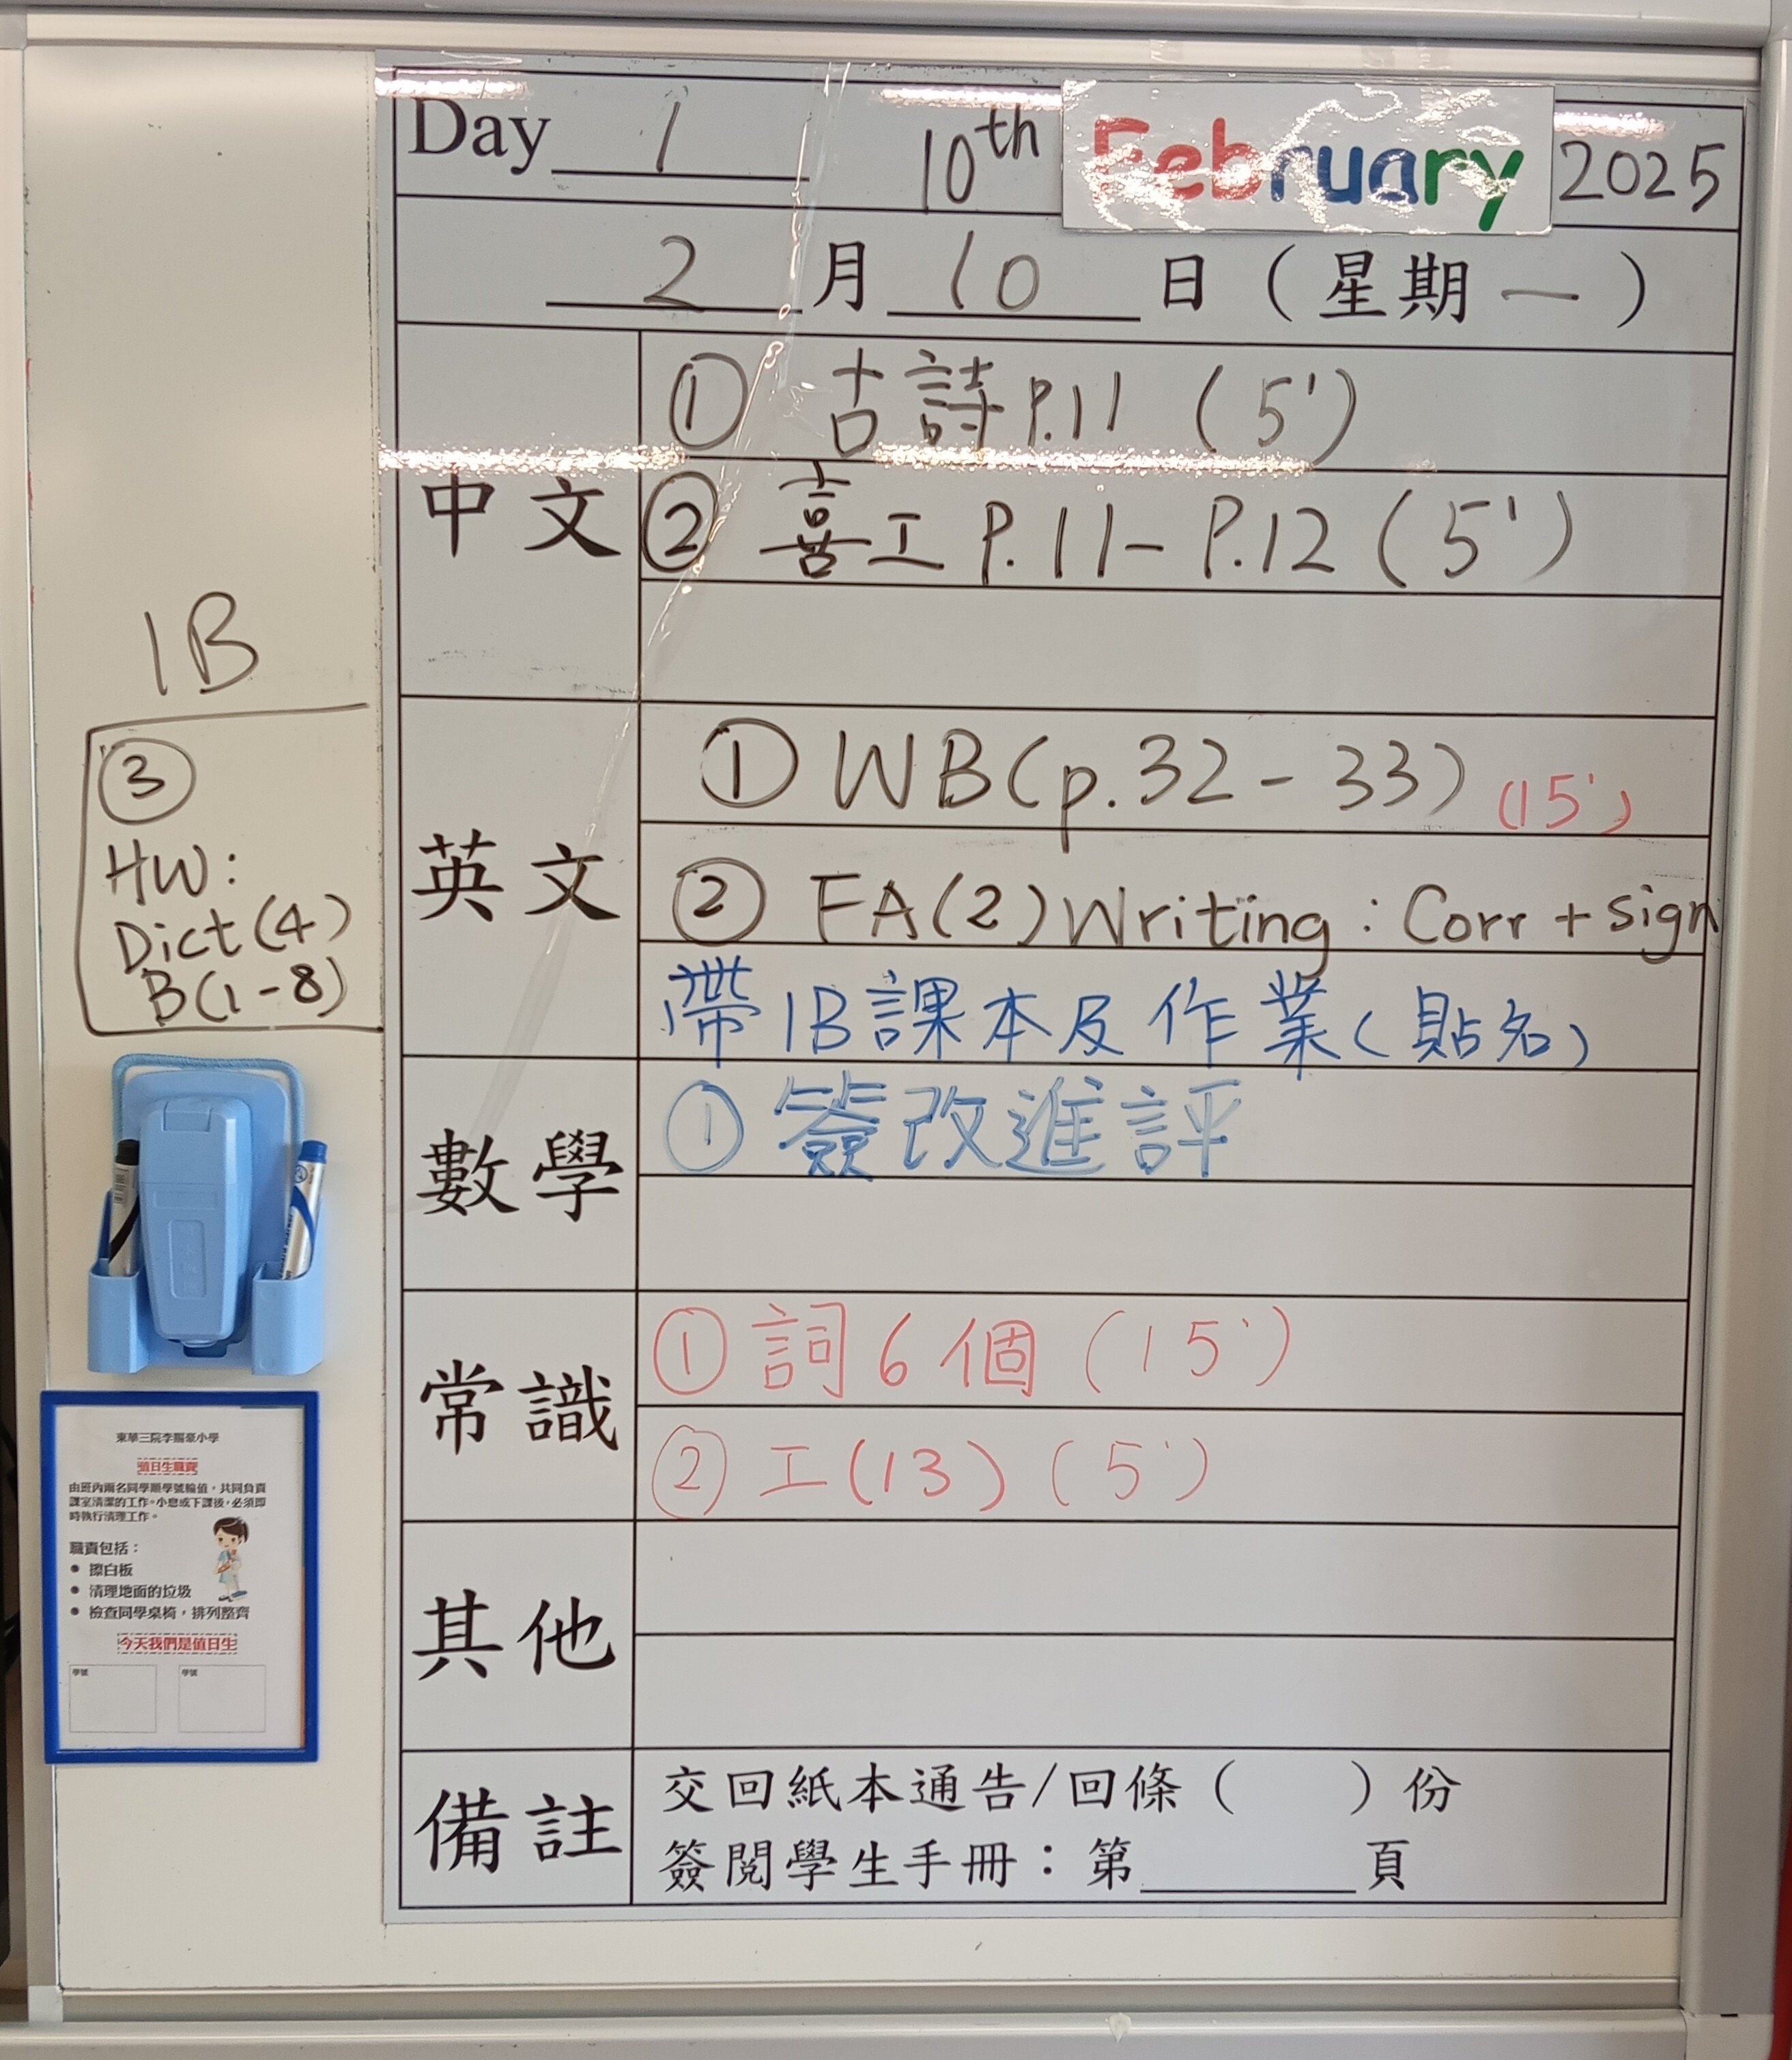 Day 1 10th February 2025
2 月 10 日 (星期一)
中文
① 古詩 P.11 (5')
② 喜工 P.11-P.12 (5')
1B
③
HW:
Dict(4)
B(1-8)
英文
① WB(p.32-33) (15')
② FA(2) Writing : Corr + sign
帶1B課本及作業(貼名)
數學
① 簽改進評
常識
① 詞6個 (15')
② 工(13) (5')
其他
備註
交回紙本通告/回條( )份
簽閱學生手冊:第______頁
東華三院李賜豪小學
值日生職責
由班內兩名同學順學號輪值,共同負責
課室清潔的工作。小息或下課後,必須即
時執行清理工作。
職責包括:
● 擦白板
● 清理地面的垃圾
● 檢查同學桌椅,排列整齊
今天我們是值日生
學號 學號